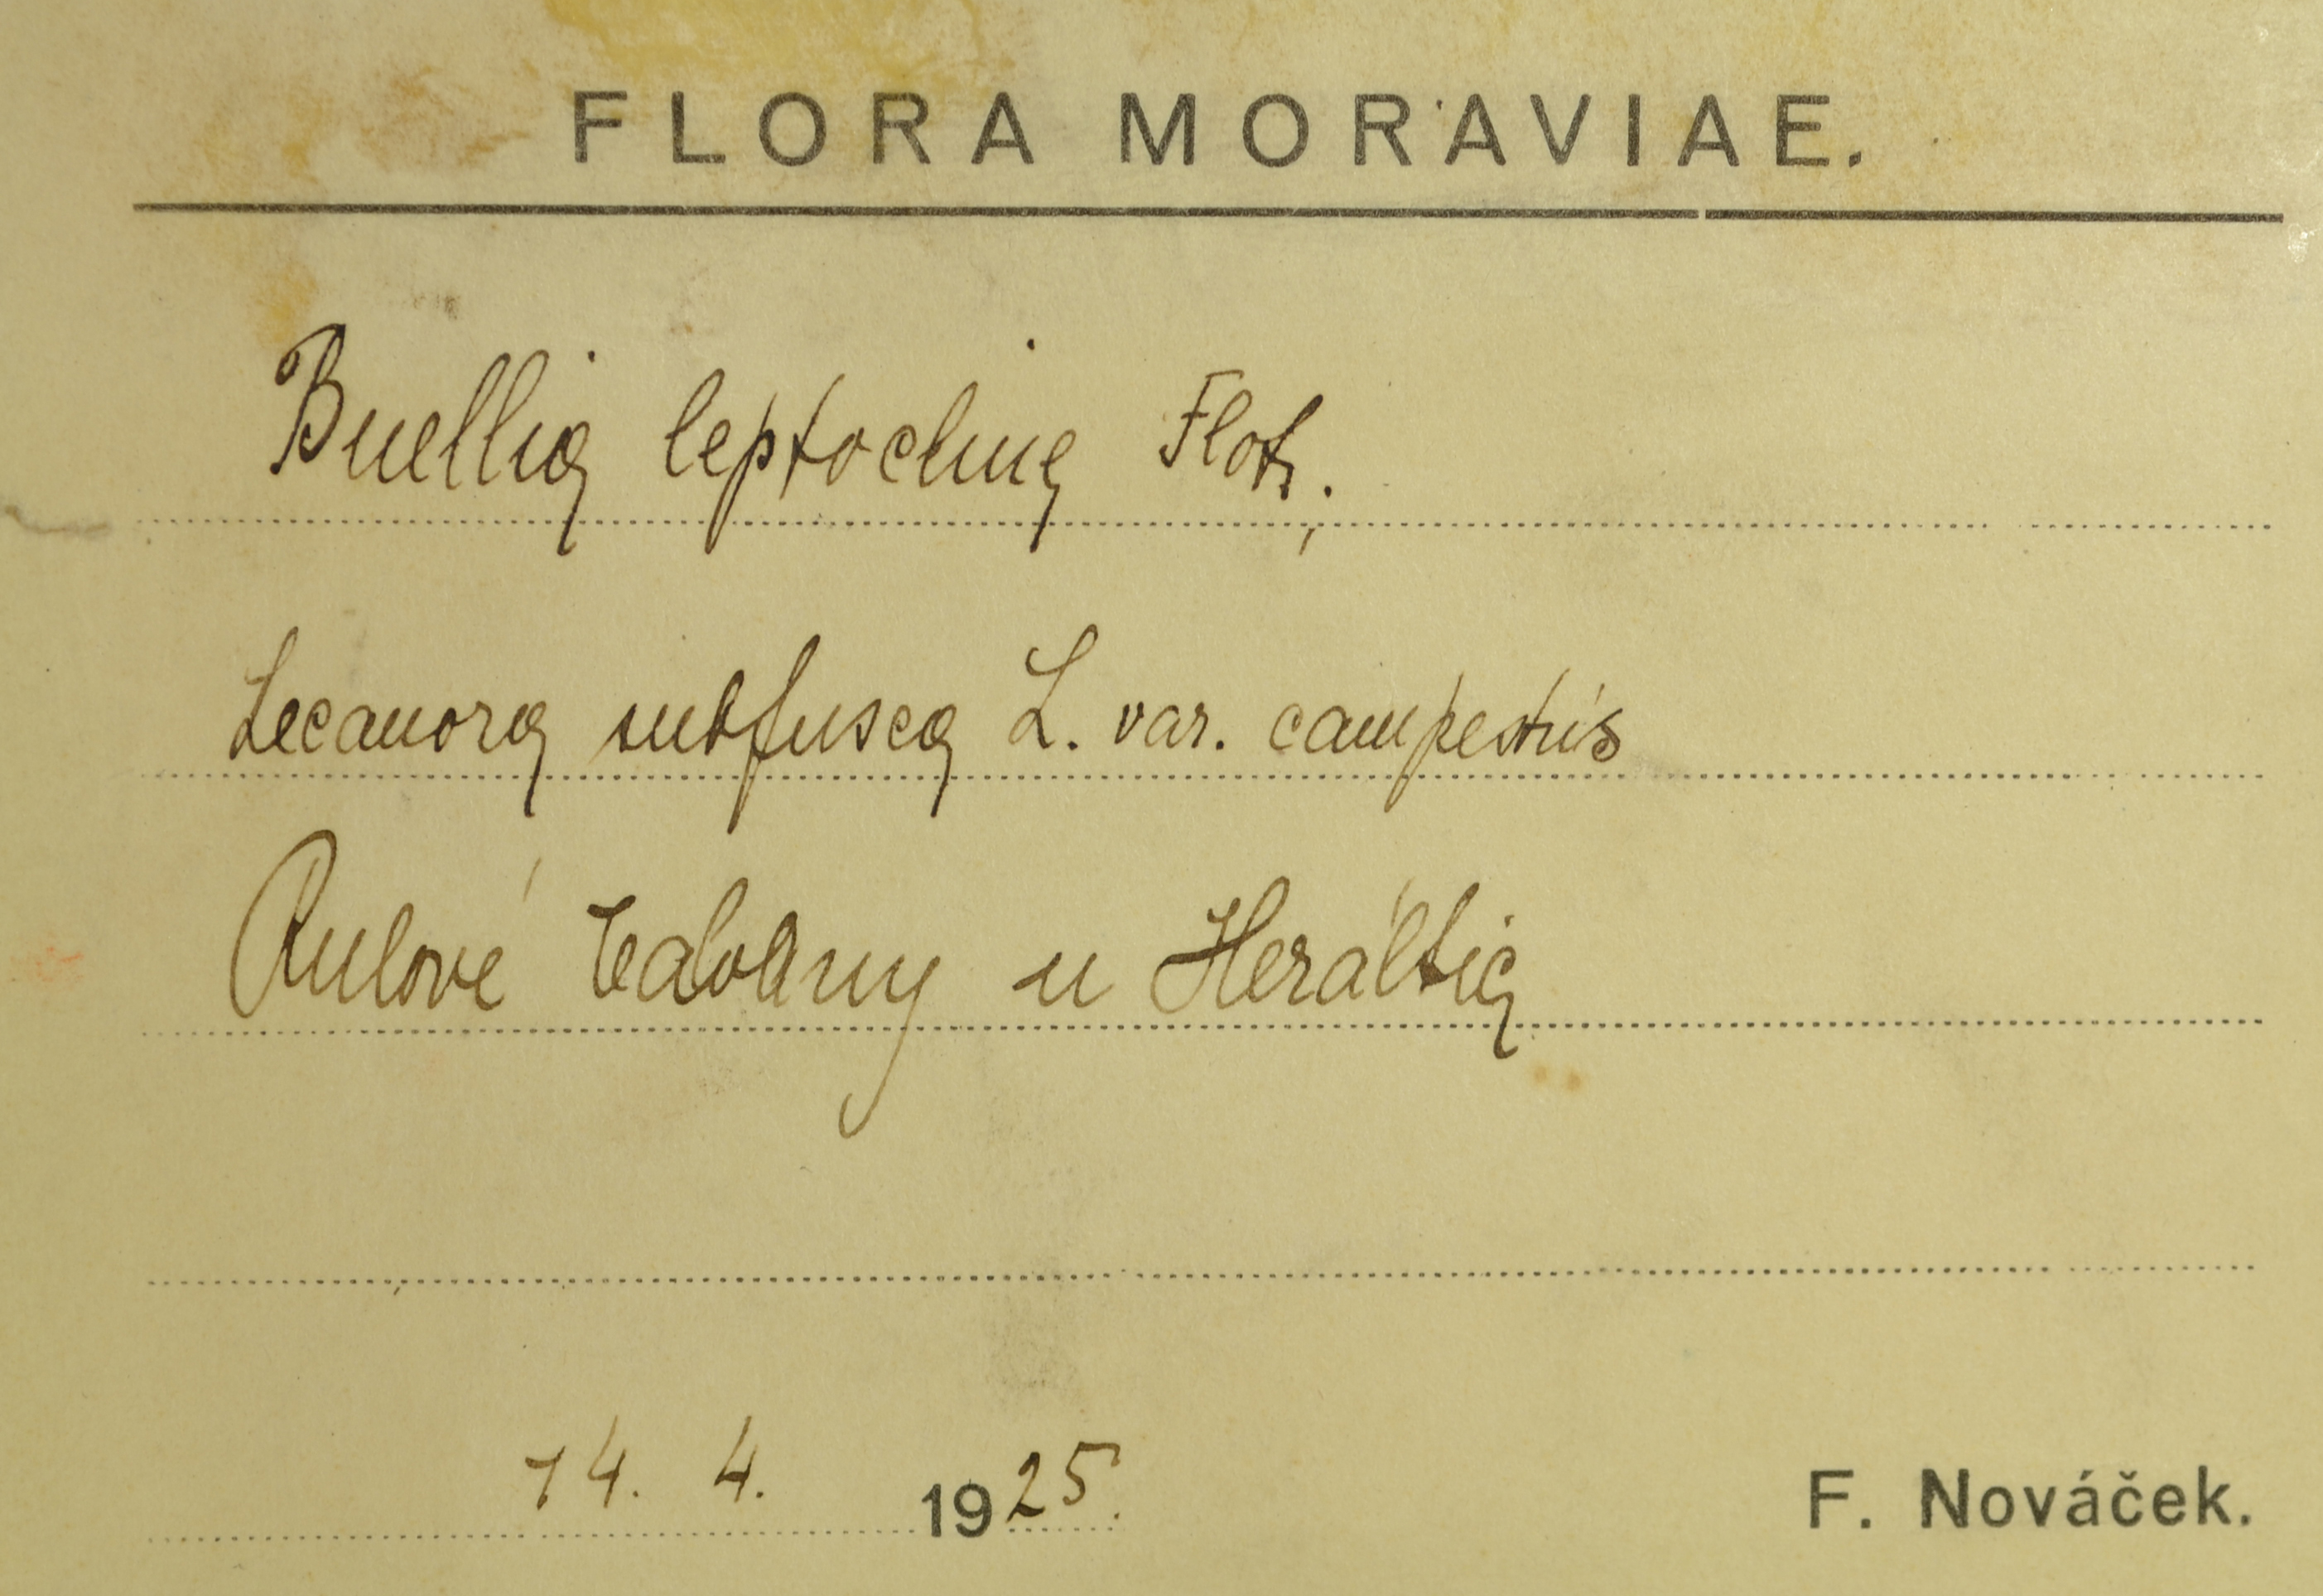 FLORA MORAVIAE.
Buellia leptoclina Flot.
Lecanora subfusca L. var. campestris
Rulové balvany u Heráltic
14. 4. 1925.
F. Nováček.